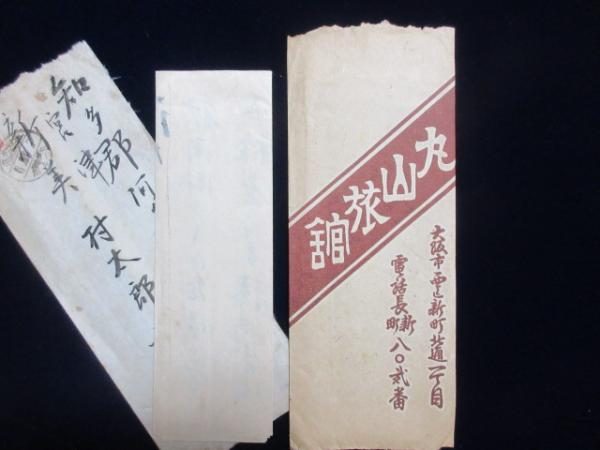 丸山旅館
大阪市西区新町北通一丁目
電話長新町八〇弐番
知多郡阿
宮津
新美村太郎